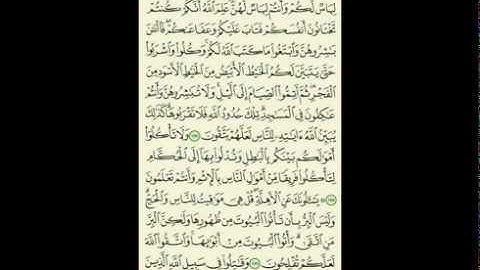 لِبَاسٌ لَّكُمْ وَأَنتُمْ لِبَاسٌ لَّهُنَّ عَلِمَ ٱللَّهُ أَنَّكُمْ كُنتُمْ
تَخْتَانُونَ أَنفُسَكُمْ فَتَابَ عَلَيْكُمْ وَعَفَا عَنكُمْ فَٱلْـَٰٔنَ
بَـٰشِرُوهُنَّ وَٱبْتَغُوا۟ مَا كَتَبَ ٱللَّهُ لَكُمْ وَكُلُوا۟ وَٱشْرَبُوا۟
حَتَّىٰ يَتَبَيَّنَ لَكُمُ ٱلْخَيْطُ ٱلْأَبْيَضُ مِنَ ٱلْخَيْطِ ٱلْأَسْوَدِ مِنَ
ٱلْفَجْرِ ثُمَّ أَتِمُّوا۟ ٱلصِّيَامَ إِلَى ٱلَّيْلِ وَلَا تُبَـٰشِرُوهُنَّ وَأَنتُمْ
عَـٰكِفُونَ فِى ٱلْمَسَـٰجِدِ تِلْكَ حُدُودُ ٱللَّهِ فَلَا تَقْرَبُوهَا كَذَٰلِكَ
يُبَيِّنُ ٱللَّهُ ءَايَـٰتِهِۦ لِلنَّاسِ لَعَلَّهُمْ يَتَّقُونَ ١٨٧ وَلَا تَأْكُلُوٓا۟
أَمْوَٰلَكُم بَيْنَكُم بِٱلْبَـٰطِلِ وَتُدْلُوا۟ بِهَآ إِلَى ٱلْحُكَّامِ
لِتَأْكُلُوا۟ فَرِيقًا مِّنْ أَمْوَٰلِ ٱلنَّاسِ بِٱلْإِثْمِ وَأَنتُمْ تَعْلَمُونَ
١٨٨ يَسْـَٔلُونَكَ عَنِ ٱلْأَهِلَّةِ قُلْ هِىَ مَوَٰقِيتُ لِلنَّاسِ وَٱلْحَجِّ
وَلَيْسَ ٱلْبِرُّ بِأَن تَأْتُوا۟ ٱلْبُيُوتَ مِن ظُهُورِهَا وَلَـٰكِنَّ ٱلْبِرَّ
مَنِ ٱتَّقَىٰ وَأْتُوا۟ ٱلْبُيُوتَ مِنْ أَبْوَٰبِهَا وَٱتَّقُوا۟ ٱللَّهَ
لَعَلَّكُمْ تُفْلِحُونَ ١٨٩ وَقَـٰتِلُوا۟ فِى سَبِيلِ ٱللَّهِ ٱلَّذِينَ